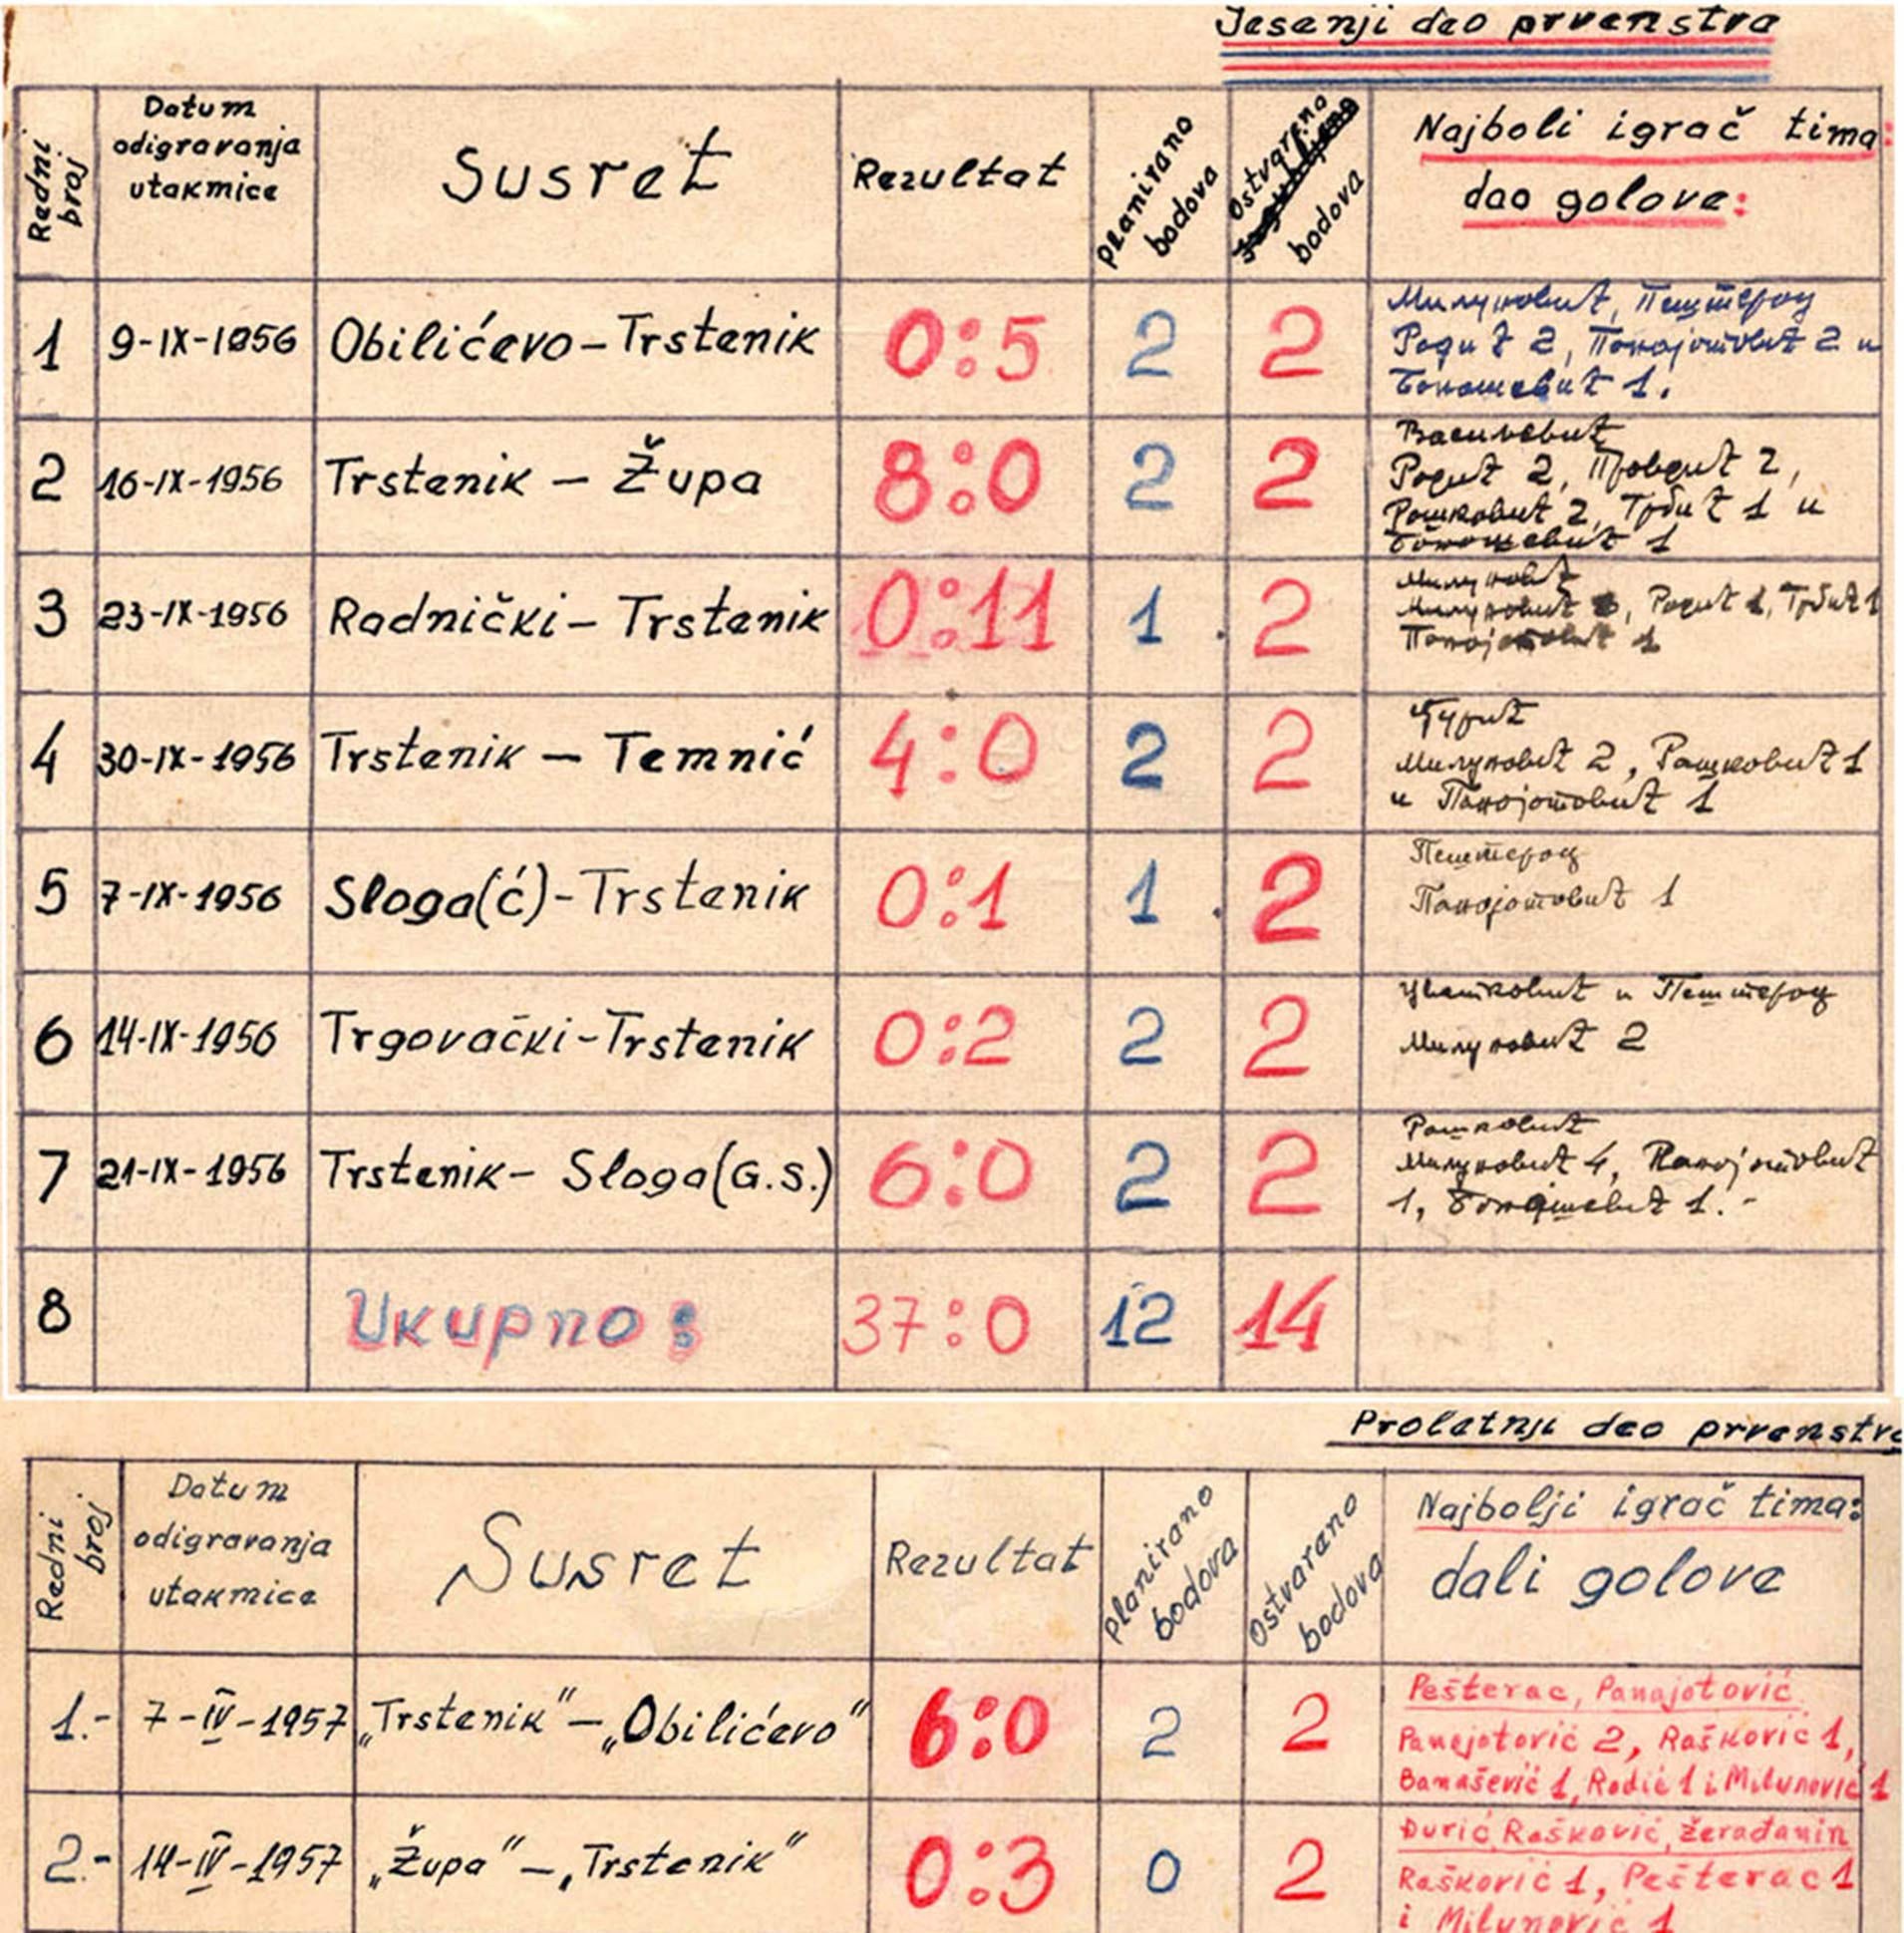 Jesenji deo prvenstva
Redni broj
Datum
odigravanja
utakmice
Susret
Rezultat
planirano
bodova
Ostvareno
bodova
Najboli igrač tima:
dao golove:
1
9-IX-1956
Obilićevo-Trstenik
0:5
2
2
Милуновић, Пештерац
Родић 2, Панајотовић 2 и
Банашевић 1.
2
16-IX-1956
Trstenik - Župa
8:0
2
2
Васиљевић
Родић 2, 2,
Рашковић 2, Трбић 1 и
Банашевић 1
3
23-IX-1956
Radnički-Trstenik
0:11
1
2
Милуновић
Милуновић , Родић 1, Трбић 1
Панајотовић 1
4
30-IX-1956
Trstenik - Temnić
4:0
2
2
Ђурић
Милуновић 2, Рашковић 1
и Панајотовић 1
5
7-IX-1956
Sloga(ć)-Trstenik
0:1
1
2
Пештерац
Панајотовић 1
6
14-IX-1956
Trgovački-Trstenik
0:2
2
2
Цветковић и Пештерац
Милуновић 2
7
21-IX-1956
Trstenik- Sloga(G.S.)
6:0
2
2
Рашковић
Милуновић 4, Панајотовић
1, Банашевић 1.-
8
Ukupno:
37:0
12
14
Proletnji deo prvenstva
Redni broj
Datum
odigravanja
utakmice
Susret
Rezultat
planirano
bodova
Ostvareno
bodova
Najbolji igrač tima:
dali golove
1.-
7-IV-1957
„Trstenik"-„Obilićevo"
6:0
2
2
Pešterac, Panajotović
Panajotović 2, Rašković 1,
Banašević 1, Rodić 1 i Milunović 1
2.-
14-IV-1957
„Župa"-„Trstenik"
0:3
0
2
Đurić, Rašković, Žerađanin
Rašković 1, Pešterac 1
i Milunović 1